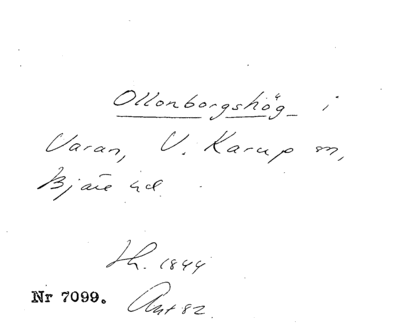 Ollonborgshög i
Varan, V. Karup sn,
Bjäre hd.
Lh. 1844
Nr 7099. Ant 82.